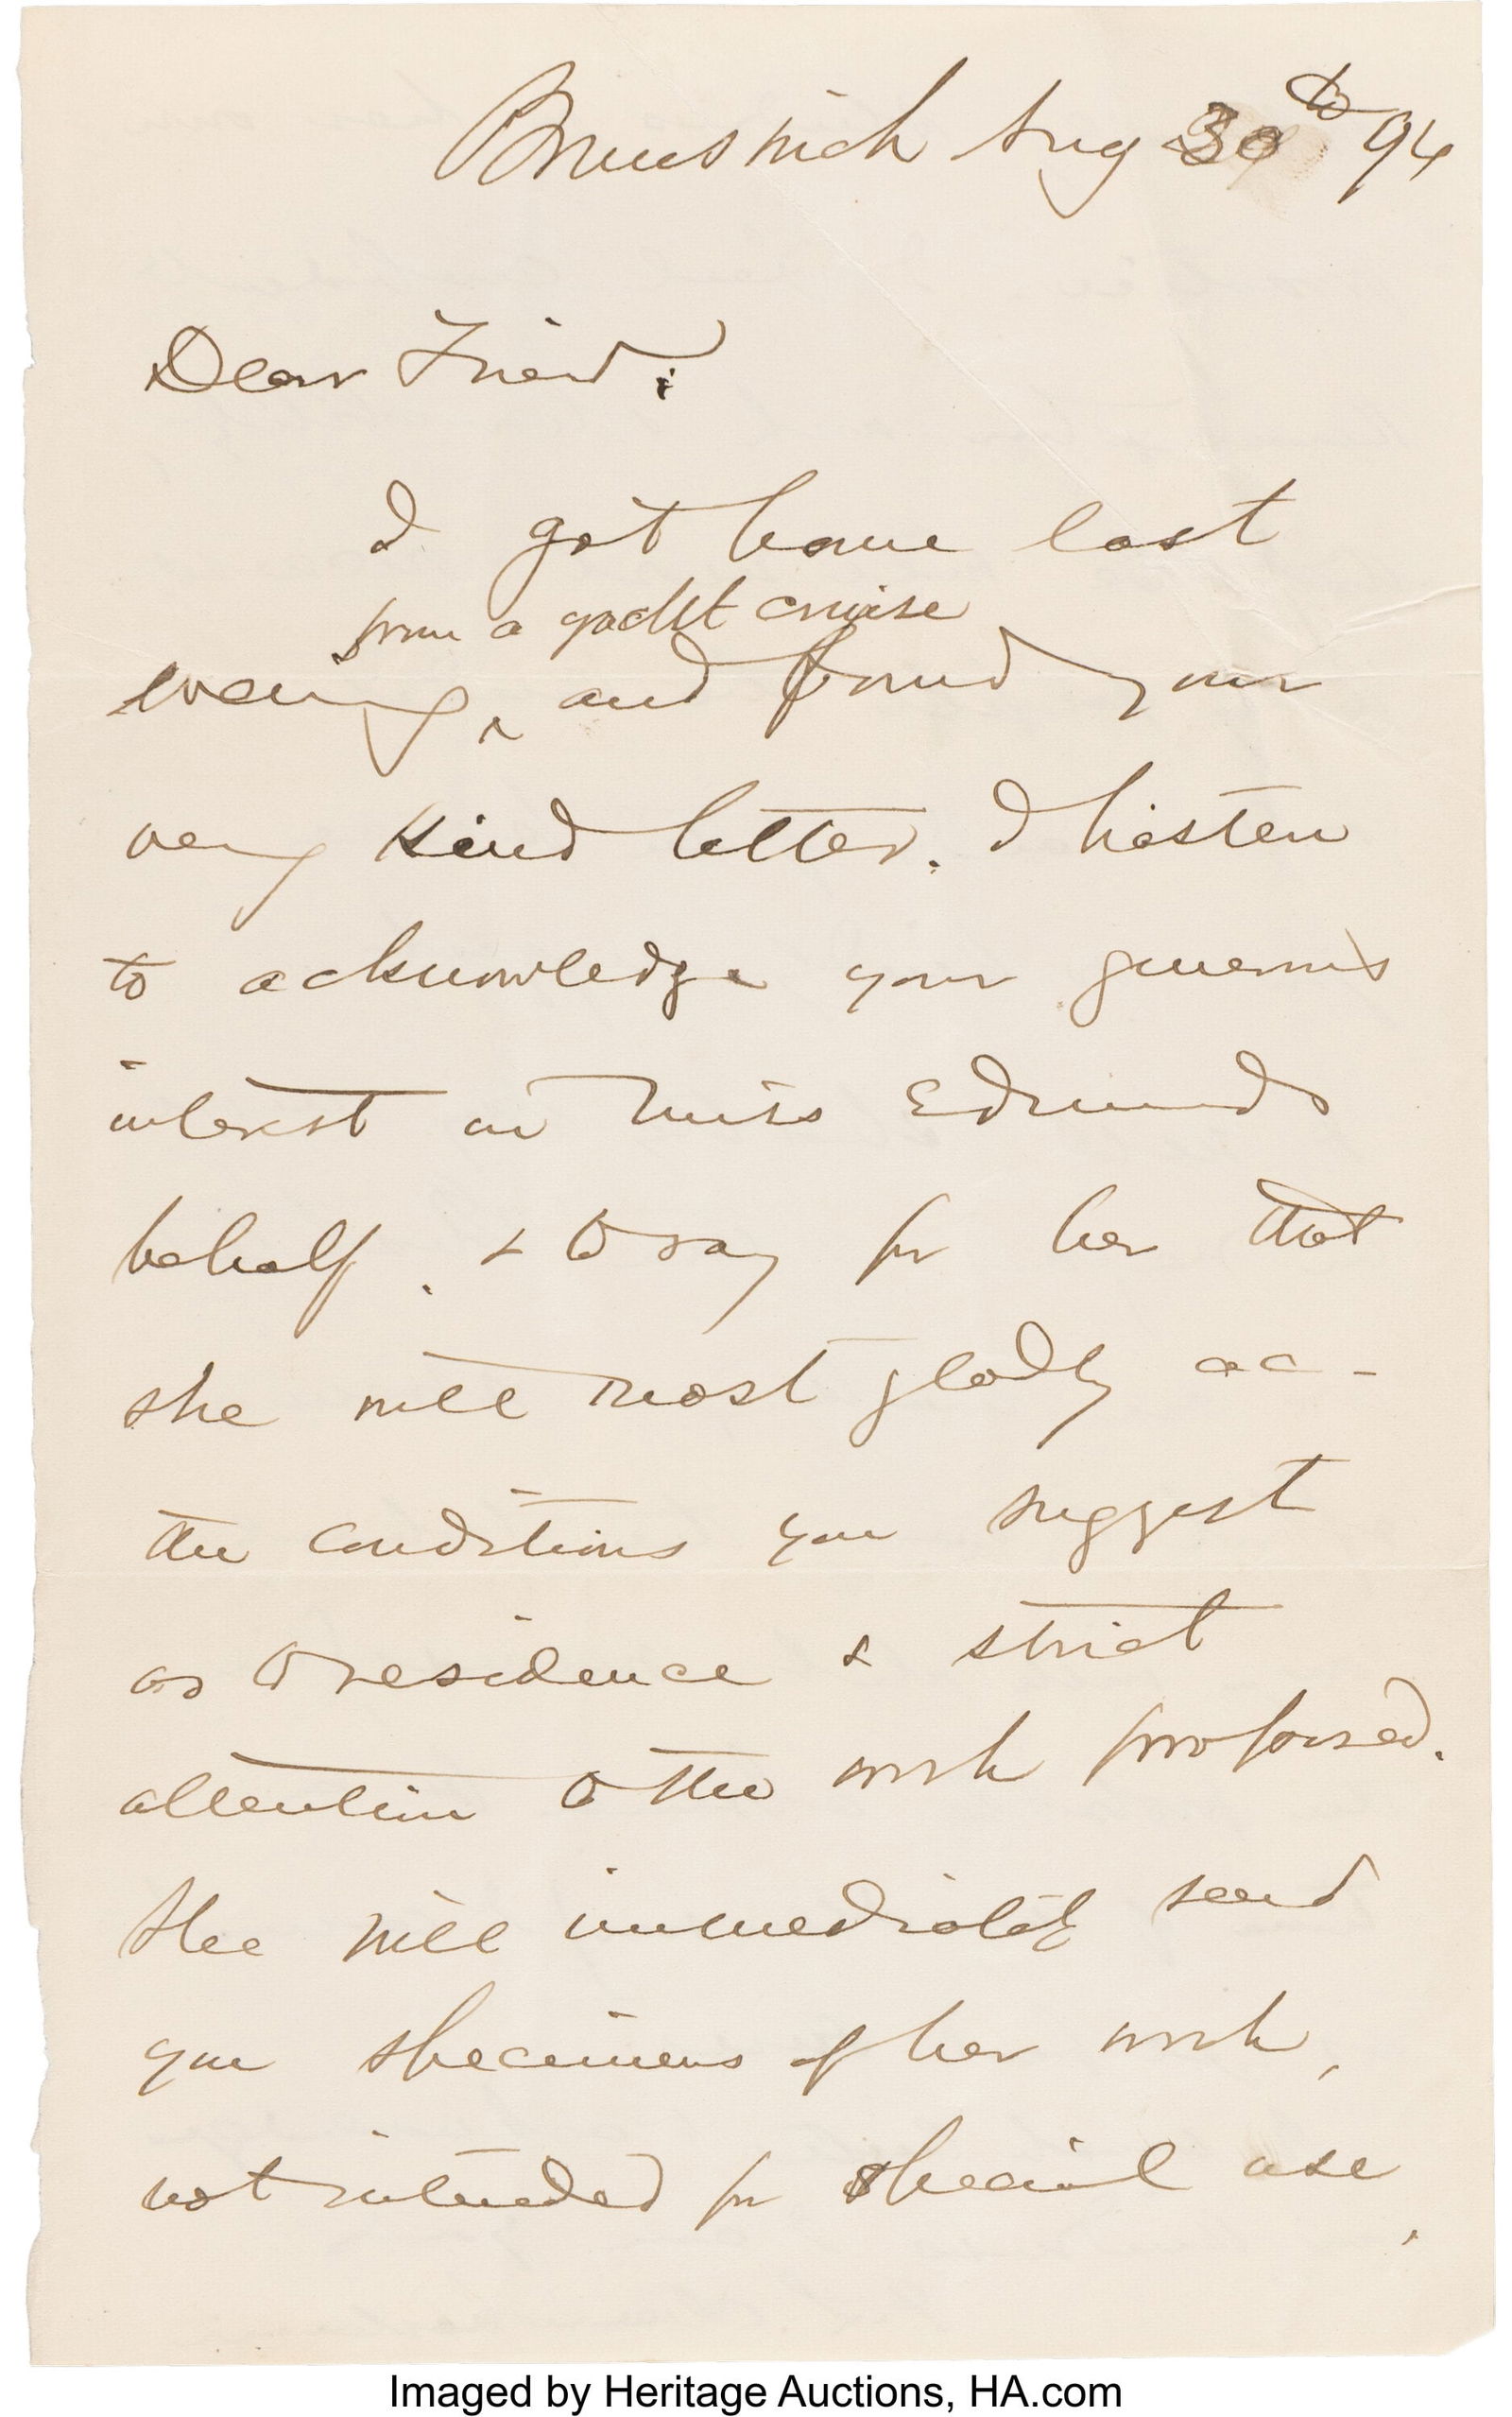 Brunswick Aug 30th 94
Dear Friend:
I got home last
from a yacht cruise
evening, ^ and found your
very kind letter. I hasten
to acknowledge your generous
interest in Miss Edmunds
behalf. & to say for her that
she will most gladly ac-
the conditions you suggest
as to residence & strict
attention to the work proposed.
She will immediately send
you specimens of her work,
not intended for special use,
Imaged by Heritage Auctions, HA.com